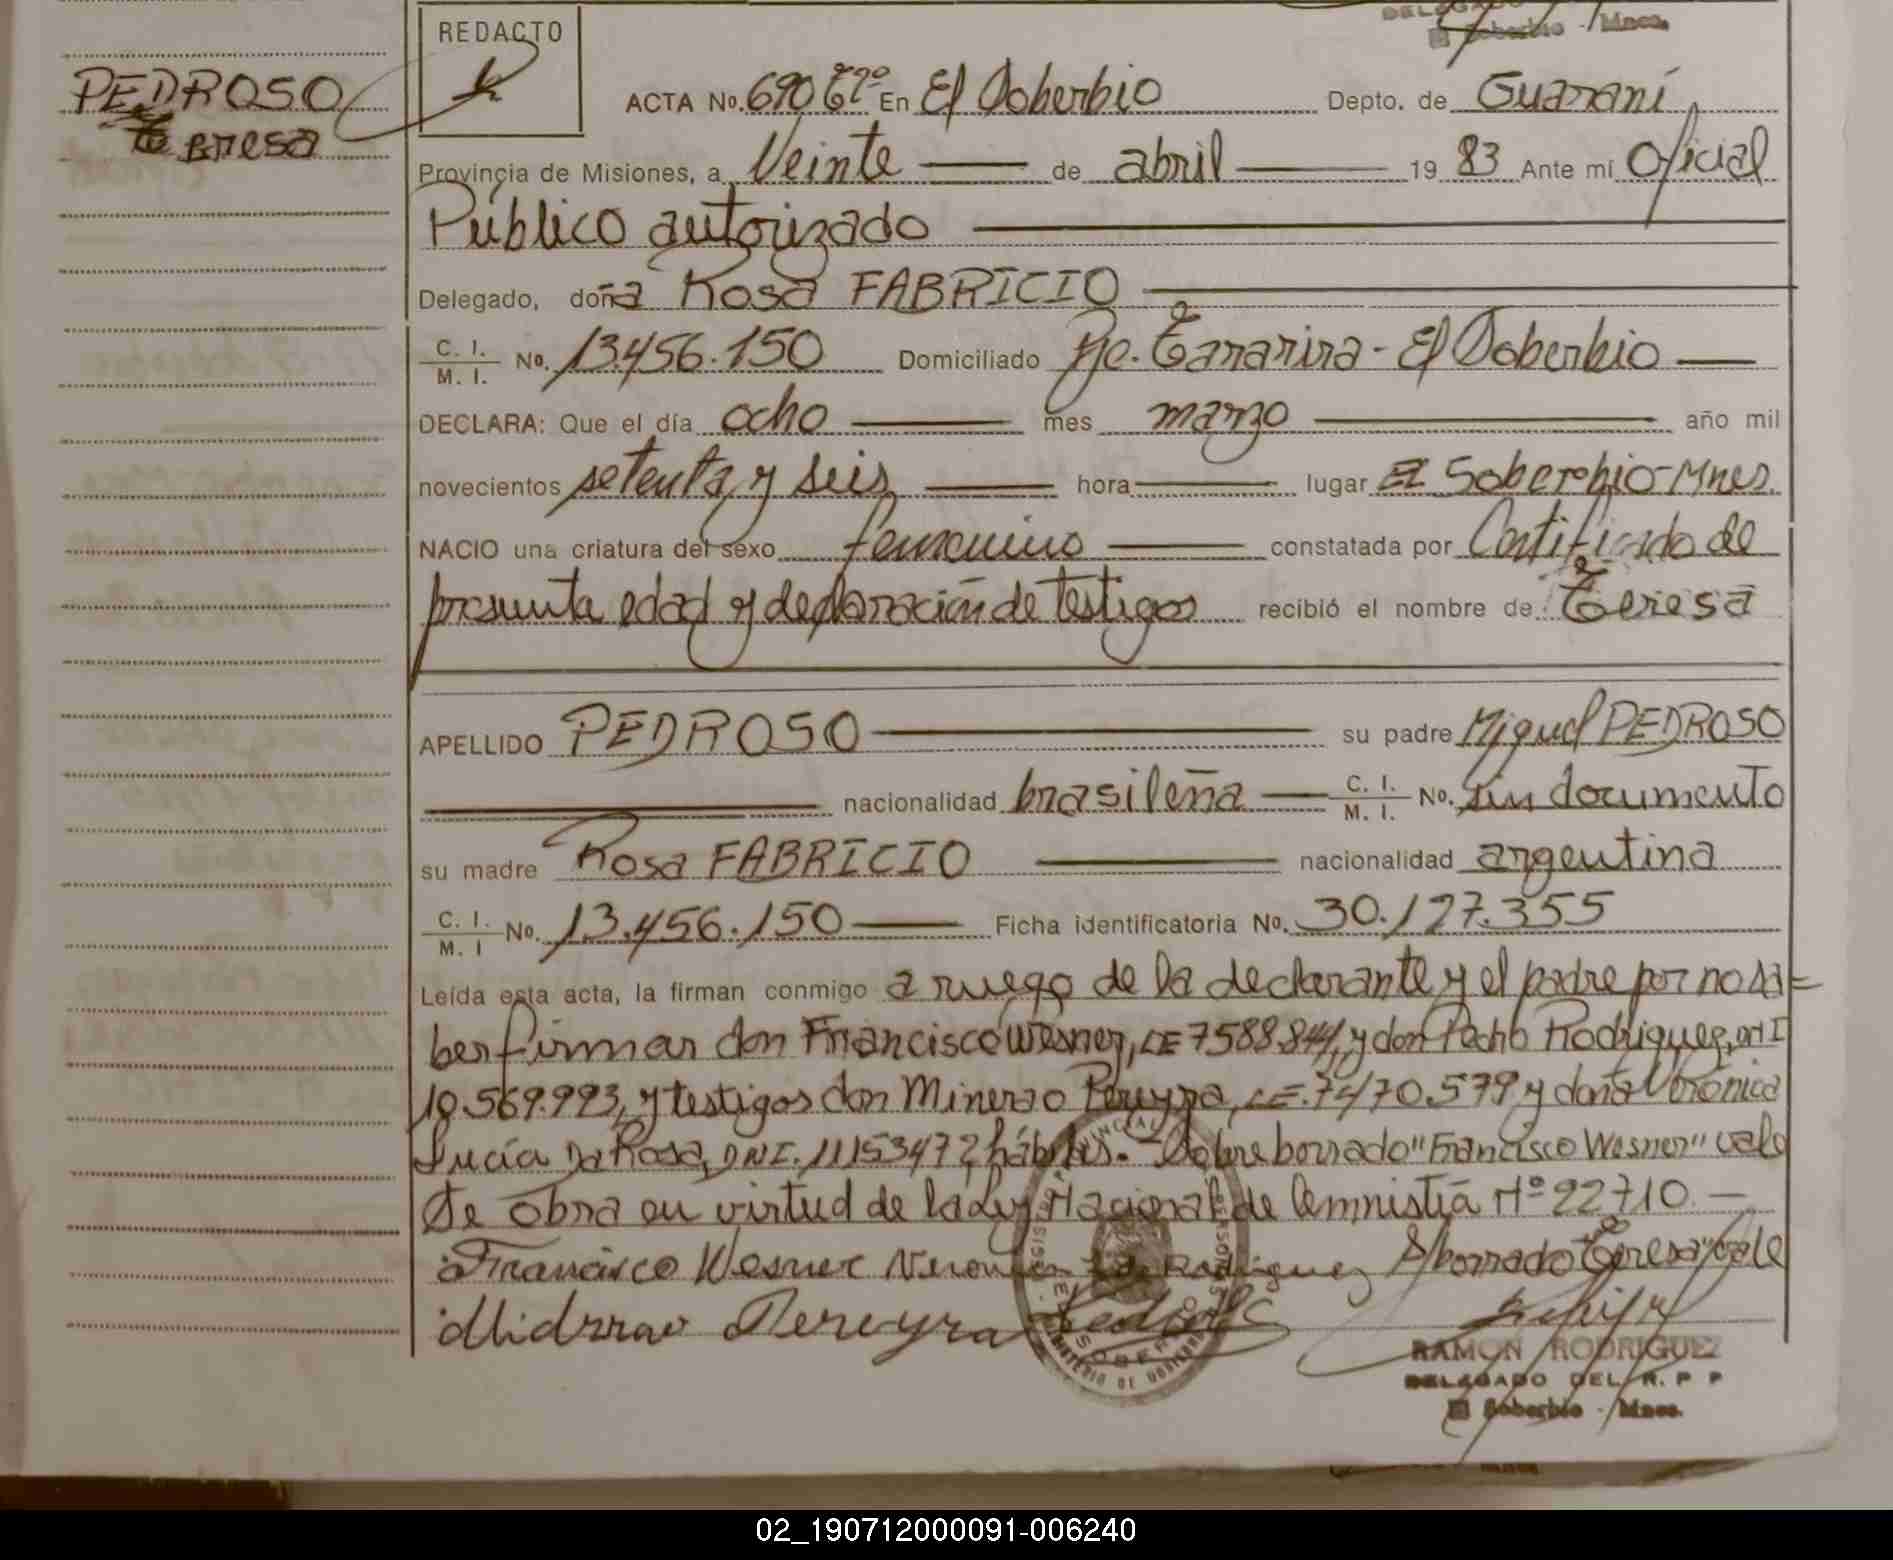 DELEGADO
El Soberbio - Mnes.
REDACTO
PEDROSO
Teresa
ACTA No. 690 Tº En El Soberbio Depto. de Guaraní
Provincia de Misiones, a Veinte de abril 19 83 Ante mí Oficial
Público autorizado
Delegado, doña Rosa FABRICIO
C. I.
M. I. No. 13.456.150 Domiciliado Pje. Tararira - El Soberbio
DECLARA: Que el día ocho mes marzo año mil
novecientos setenta y seis hora lugar El Soberbio - Mnes.
NACIO una criatura del sexo femenino constatada por Certificado de
presunta edad y declaración de testigos recibió el nombre de: Teresa
APELLIDO PEDROSO su padre Miguel PEDROSO
nacionalidad brasileña C. I.
M. I. No. sin documento
su madre Rosa FABRICIO nacionalidad argentina
C. I.
M. I No. 13.456.150 Ficha identificatoria No. 30.127.355
Leída esta acta, la firman conmigo a ruego de la declarante y el padre por no sa=
ber firmar don Francisco Wesner, LE 7588.844, y don Pedro Rodriguez,
10.569.993, y testigos don Minerao Pereyra, LE. 7470.579 y doña Verónica
Lucía Da Rosa, DNI. 11153472, hábiles.- Sobre borrado "Francisco Wesner" vale
Se obra en virtud de la Ley Nacional de Amnistía Nº 22710.-
Francisco Wesner Rodriguez S/borrado "Teresa" vale
Pereyra
RAMON RODRIGUEZ
DELEGADO DEL R. P P
El Soberbio - Mnes.
02_190712000091-006240